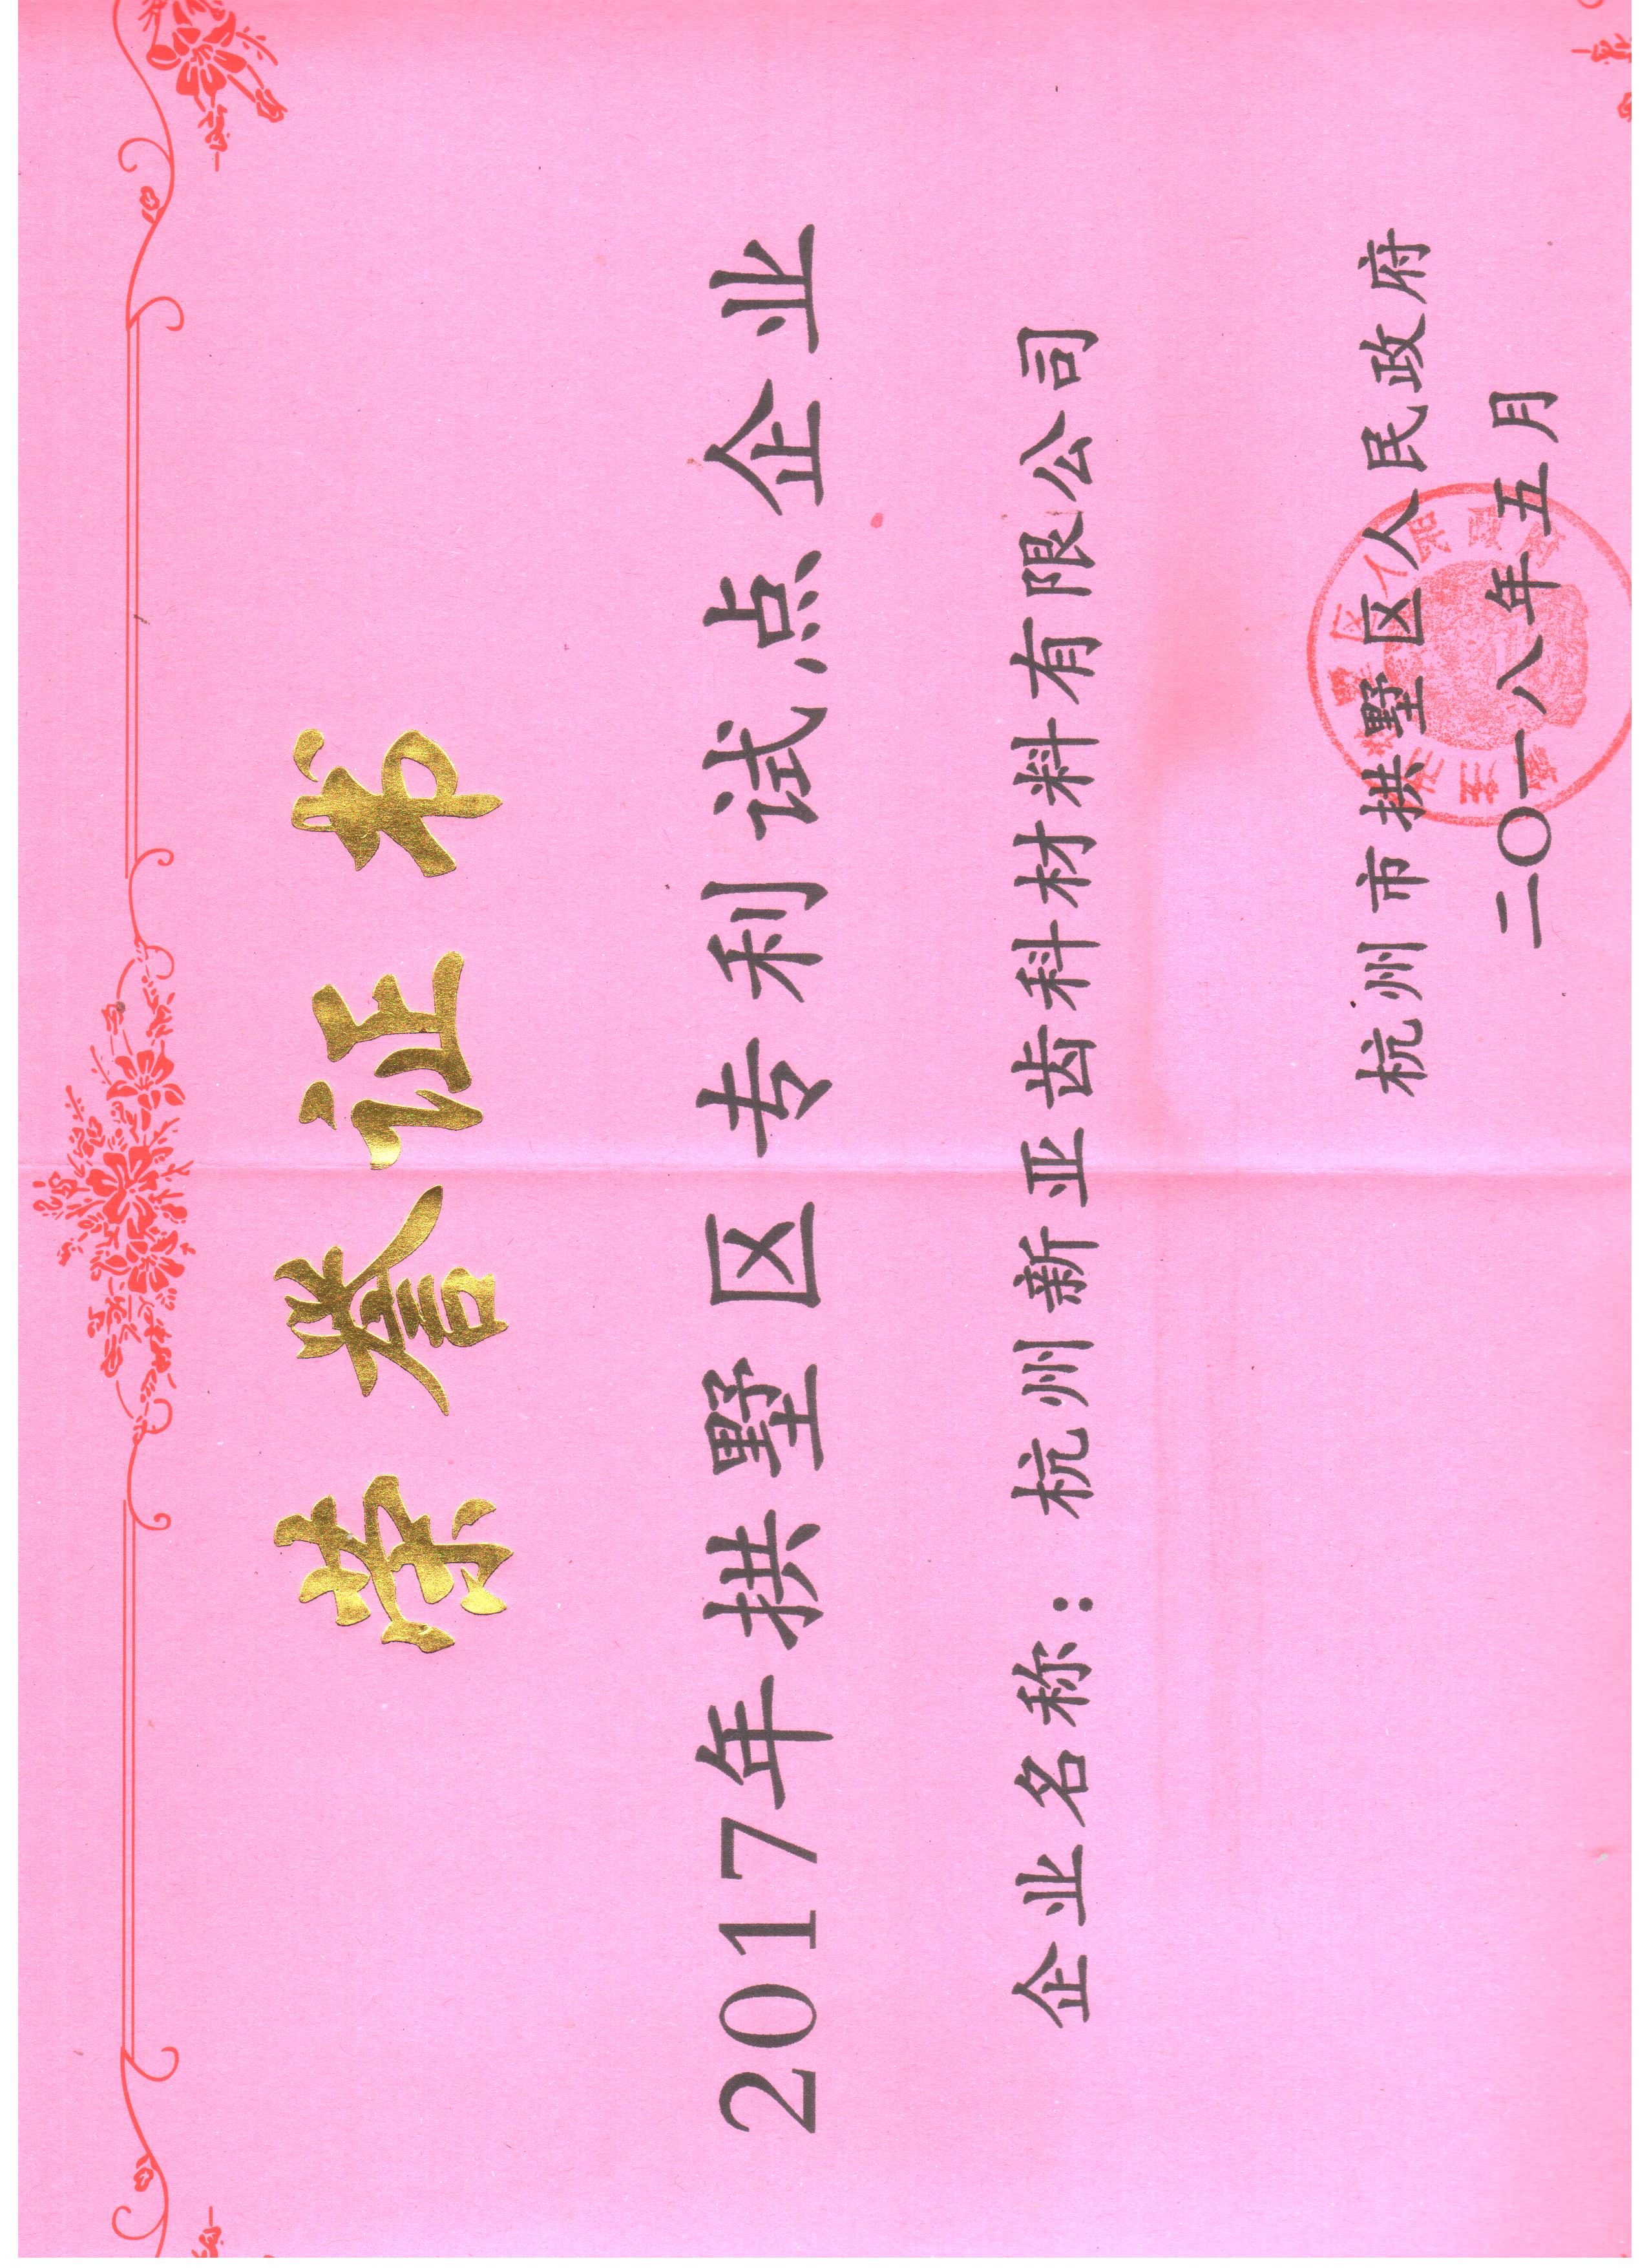 荣誉证书
2017年拱墅区专利试点企业
企业名称：杭州新亚齿科材料有限公司
杭州市拱墅区人民政府
二〇一八年五月